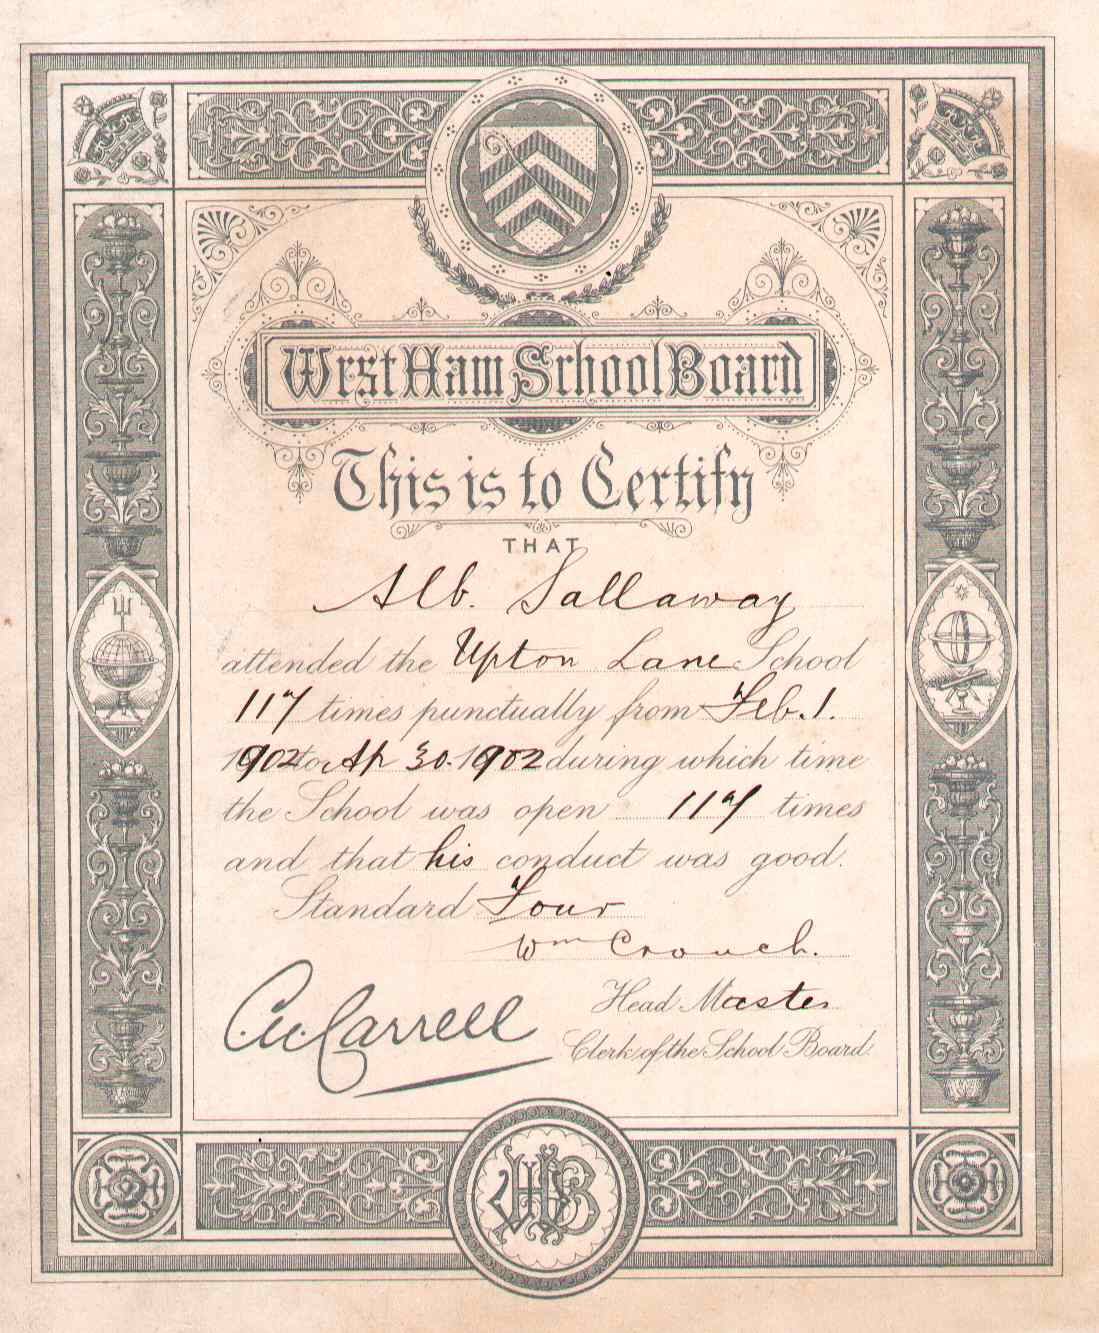 West Ham School Board
This is to Certify
THAT
Alb. Sallaway
attended the Upton Lane School
117 times punctually from Feb. 1.
1902 to Ap 30. 1902 during which time
the School was open 117 times
and that his conduct was good.
Standard Four
Wm Crouch.
Head Master
Carrell
Clerk of the School Board